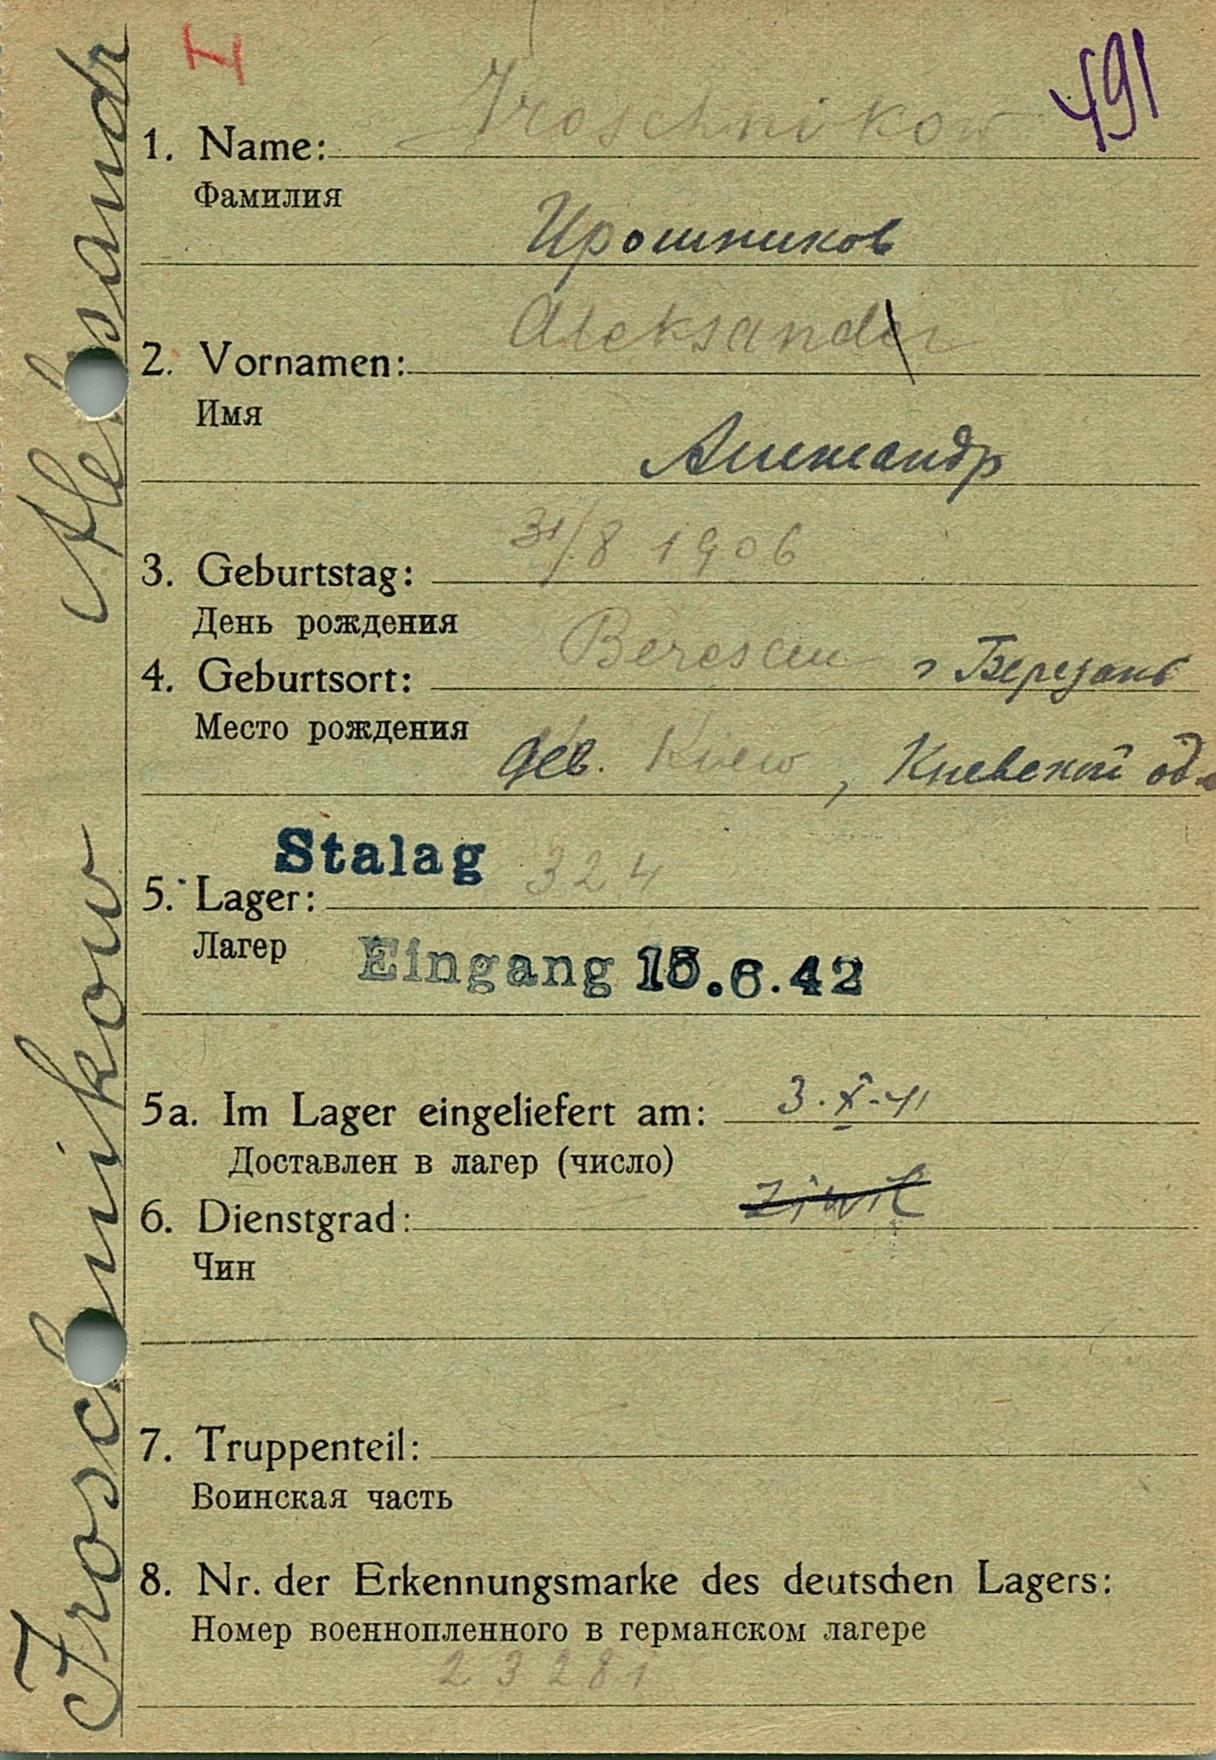 I
491
Iroschnikow Aleksandr
1. Name: Iroschnikow
Фамилия
Ирошников
2. Vornamen: Aleksander
Имя
Александр
3. Geburtstag: 31/8 1906
День рождения
4. Geburtsort: Beresan г Березань
Место рождения
дев. Kiew, Киевской обл
Stalag
5. Lager: 324
Лагер
Eingang 15.6.42
5a. Im Lager eingeliefert am: 3.X.41
Доставлен в лагер (число)
6. Dienstgrad: Ziwil
Чин
7. Truppenteil:
Воинская часть
8. Nr. der Erkennungsmarke des deutschen Lagers:
Номер военнопленного в германском лагере
23281